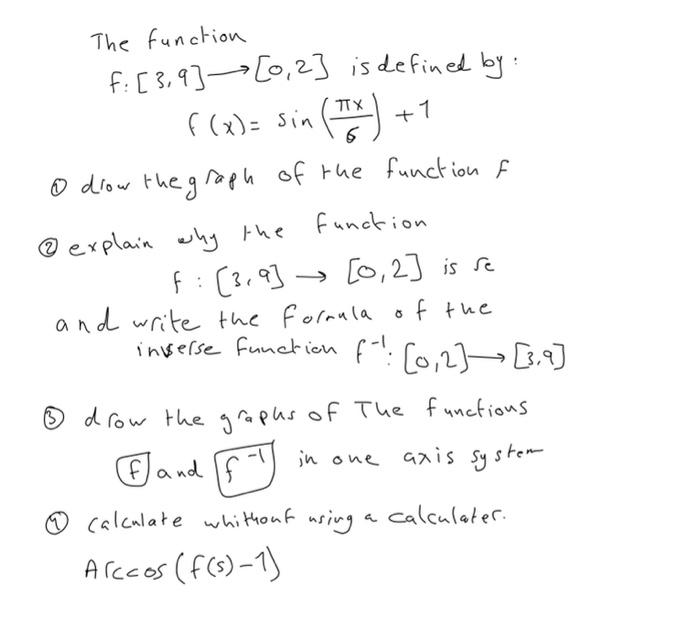 The function
f: [3,9] → [0,2] is defined by:
f(x) = sin(πx/6) + 1
① drow the graph of the function f
② explain why the function
f : [3,9] → [0,2] is re
and write the formula of the
inverse function f⁻¹: [0,2] → [3,9]
③ drow the graphs of The functions
f and f⁻¹ in one axis system
④ calculate whithout using a calculater.
Arccos(f(5)-1)